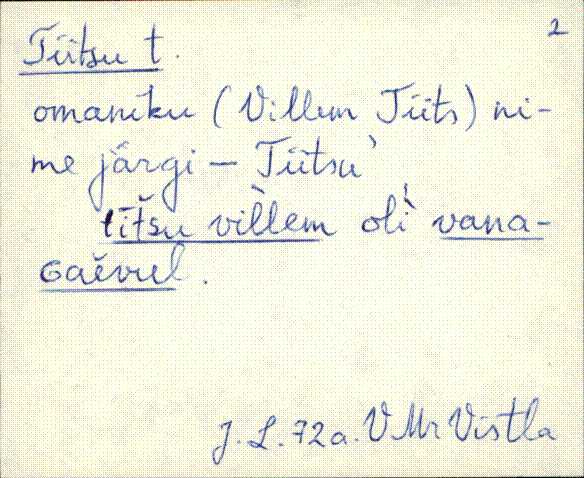 2
Tiitsu t.
omaniku (Villem Tiits) ni-
me järgi – Tiitsu'
tītšu vìllem olì vana-
Gaěvuel.
J. L. 72a. VMr Vistla